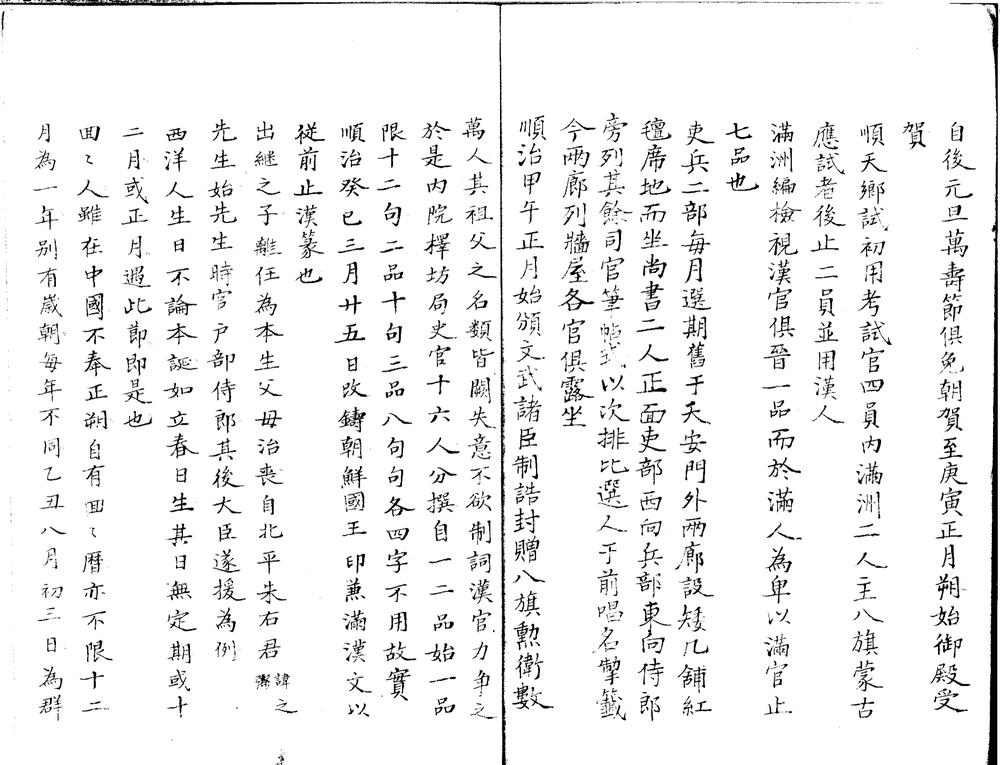 自後元旦萬壽節俱免朝賀至庚寅正月朔始御殿受
賀
順天鄉試初用考試官四員內滿洲二人主八旗蒙古
應試者後止二員並用漢人
滿洲編檢視漢官俱晉一品而於滿人為卑以滿官止
七品也
吏兵二部每月選期舊于天安門外兩廊設矮几舖紅
氊席地而坐尚書二人正面吏部西向兵部東向侍郎
旁列其餘司官筆帖式以次排比選人于前唱名掣籤
今兩廊列牆屋各官俱露坐
順治甲午正月始頒文武諸臣制誥封贈八旗勲衛數
萬人其祖父之名類皆闕失意不欲制詞漢官力争之
於是内院擇坊局史官十六人分撰自一二品始一品
限十二句二品十句三品八句句各四字不用故實
順治癸巳三月廿五日改鑄朝鮮國王印兼滿漢文以
從前止漢篆也
出継之子離任為本生父母治喪自北平朱右君諱之
先生始先生時官户部侍郎其後大臣遂援為例
西洋人生日不論本誕如立春日生其日無定期或十
二月或正月遇此節即是也
囬〻人雖在中國不奉正朔自有囬〻曆亦不限十二
月為一年别有歲朝每年不同乙丑八月初三日為群